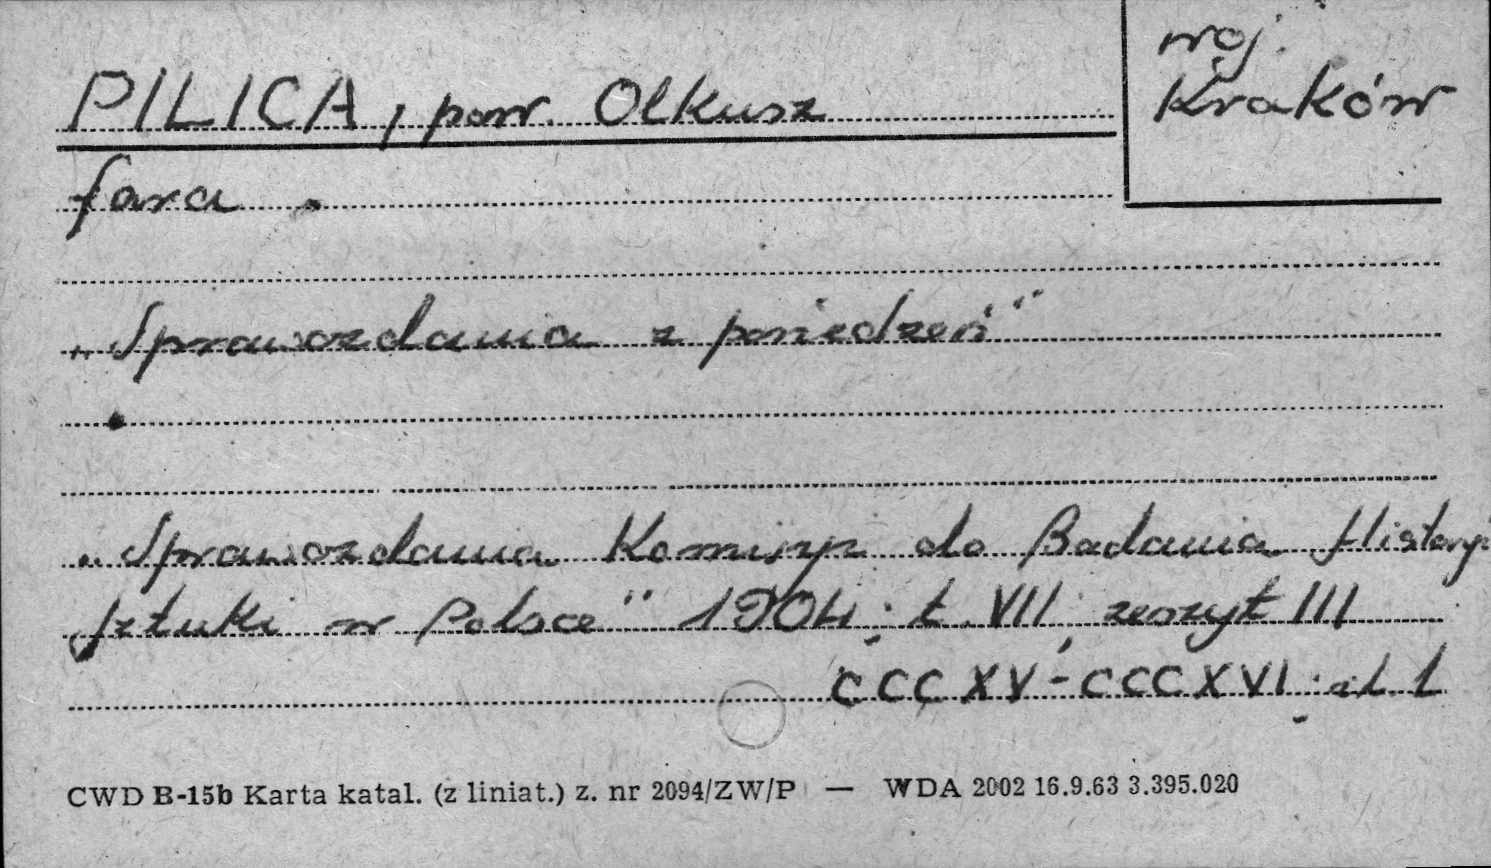 woj.
Kraków
PILICA, pow. Olkusz
fara
„Sprawozdania z posiedzeń"
„Sprawozdania Komisyi do Badania Historyi
Sztuki w Polsce" 1904; t. VII, zeszyt III
CCCXV-CCCXVI; il. 1
CWD B-15b Karta katal. (z liniat.) z. nr 2094/ZW/P — WDA 2002 16.9.63 3.395.020